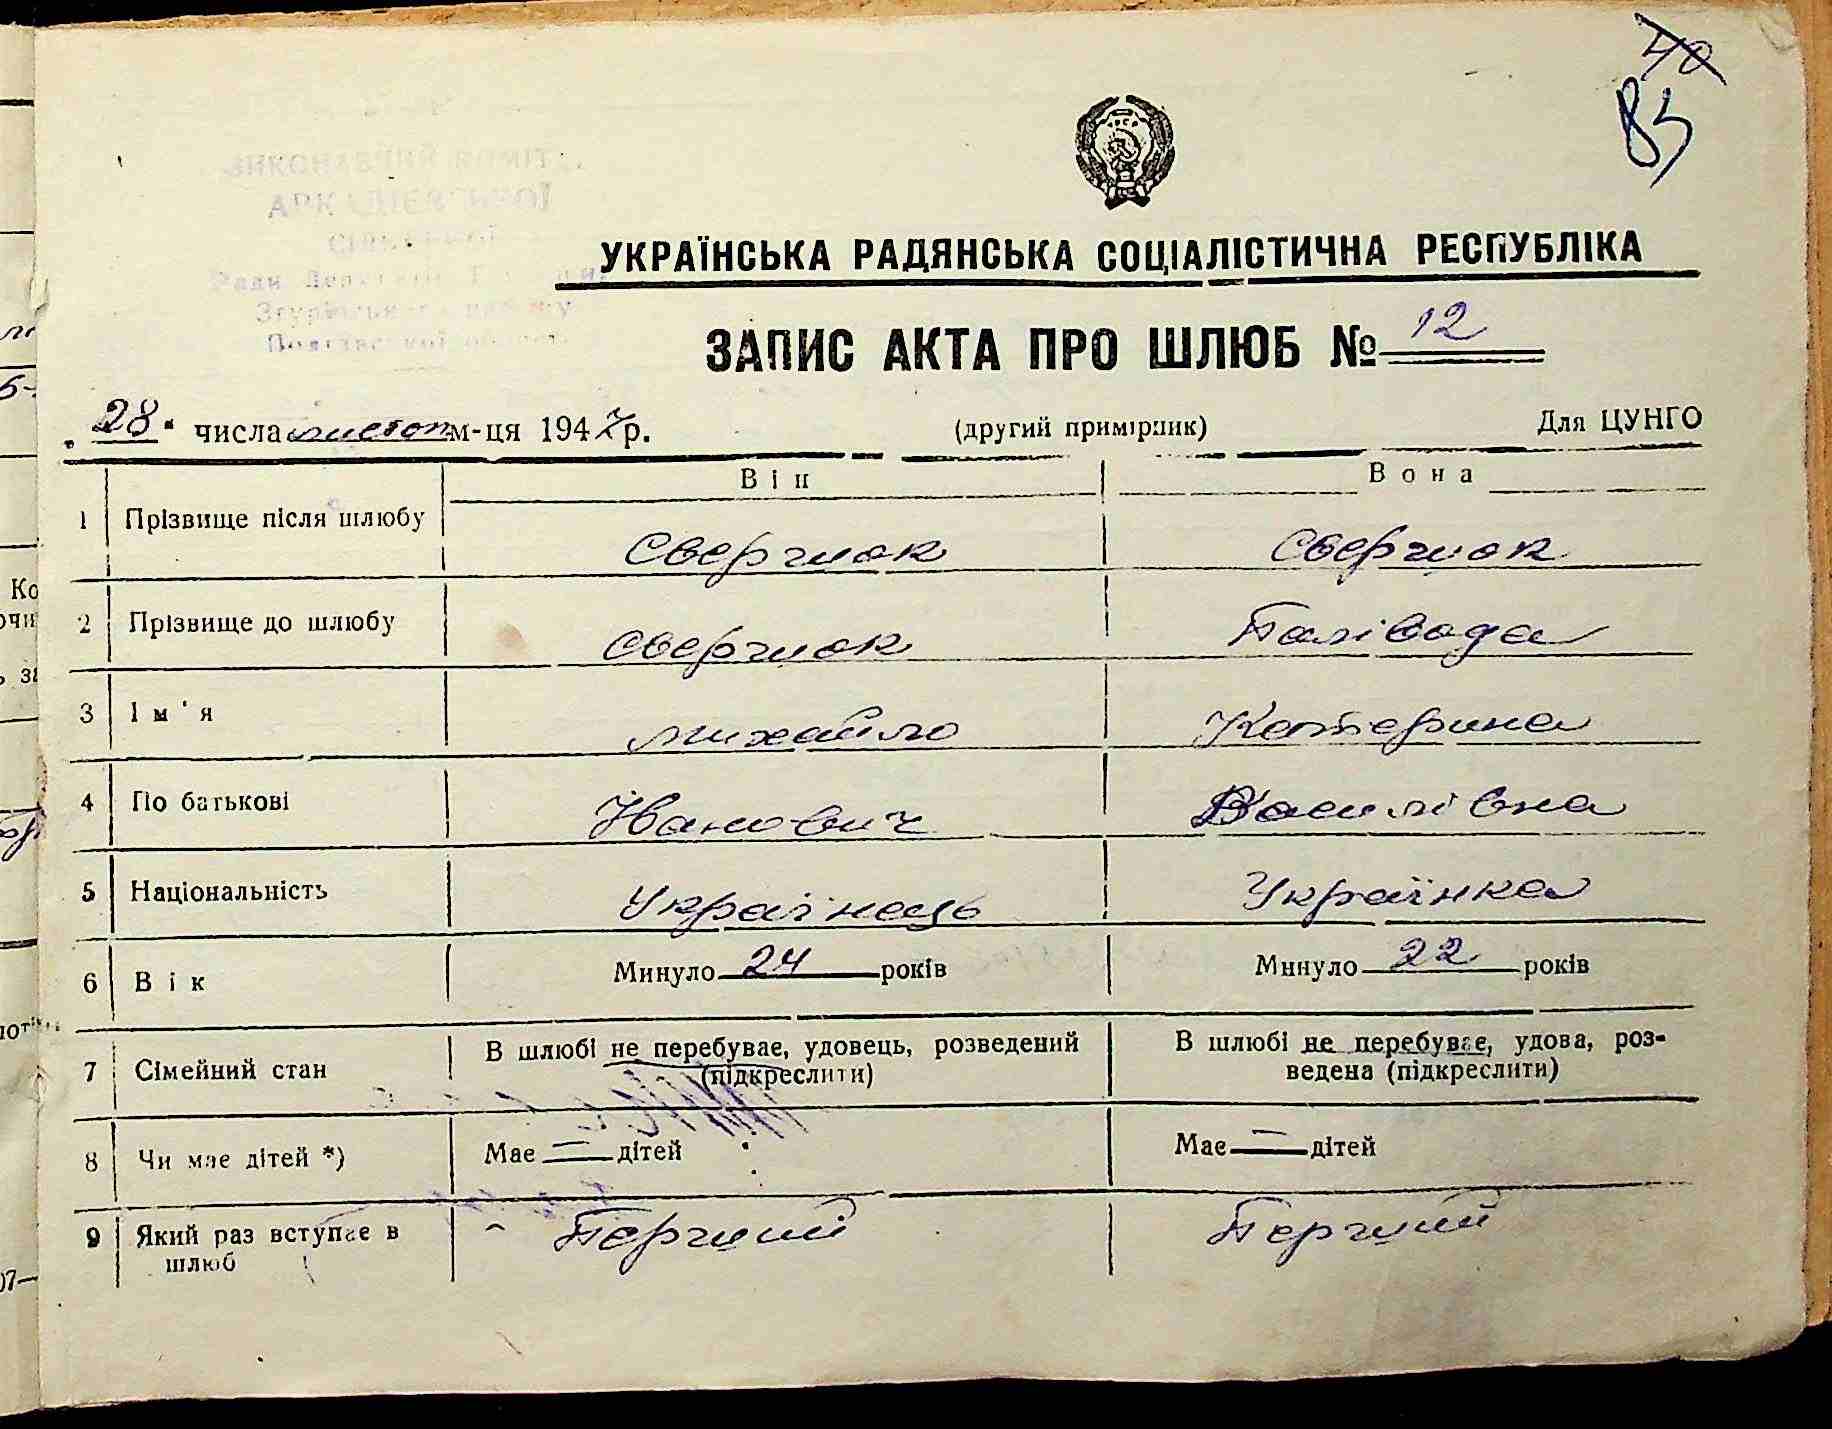 40
85
ВИКОНАВЧИЙ КОМІТ
АРКАДІЄВСЬКОЇ
СІЛЬСЬКОЇ
Ради Депутатів
Згурівського району
Полтавської області
УКРАЇНСЬКА РАДЯНСЬКА СОЦІАЛІСТИЧНА РЕСПУБЛІКА
ЗАПИС АКТА ПРО ШЛЮБ № 12
„28“ числа листоп м-ця 1947 р. (другий примірник) Для ЦУНГО
Він Вона
1 Прізвище після шлюбу Сверчок Сверчок
2 Прізвище до шлюбу Сверчок Палівода
3 Ім'я Михайло Катерина
4 По батькові Іванович Василівна
5 Національність Українець Українка
6 Вік Минуло 24 років Минуло 22 років
7 Сімейний стан В шлюбі не перебуває, удовець, розведений В шлюбі не перебуває, удова, роз-
(підкреслити) ведена (підкреслити)
8 Чи має дітей *) Має — дітей Має — дітей
9 Який раз вступає в Перший Перший
шлюб